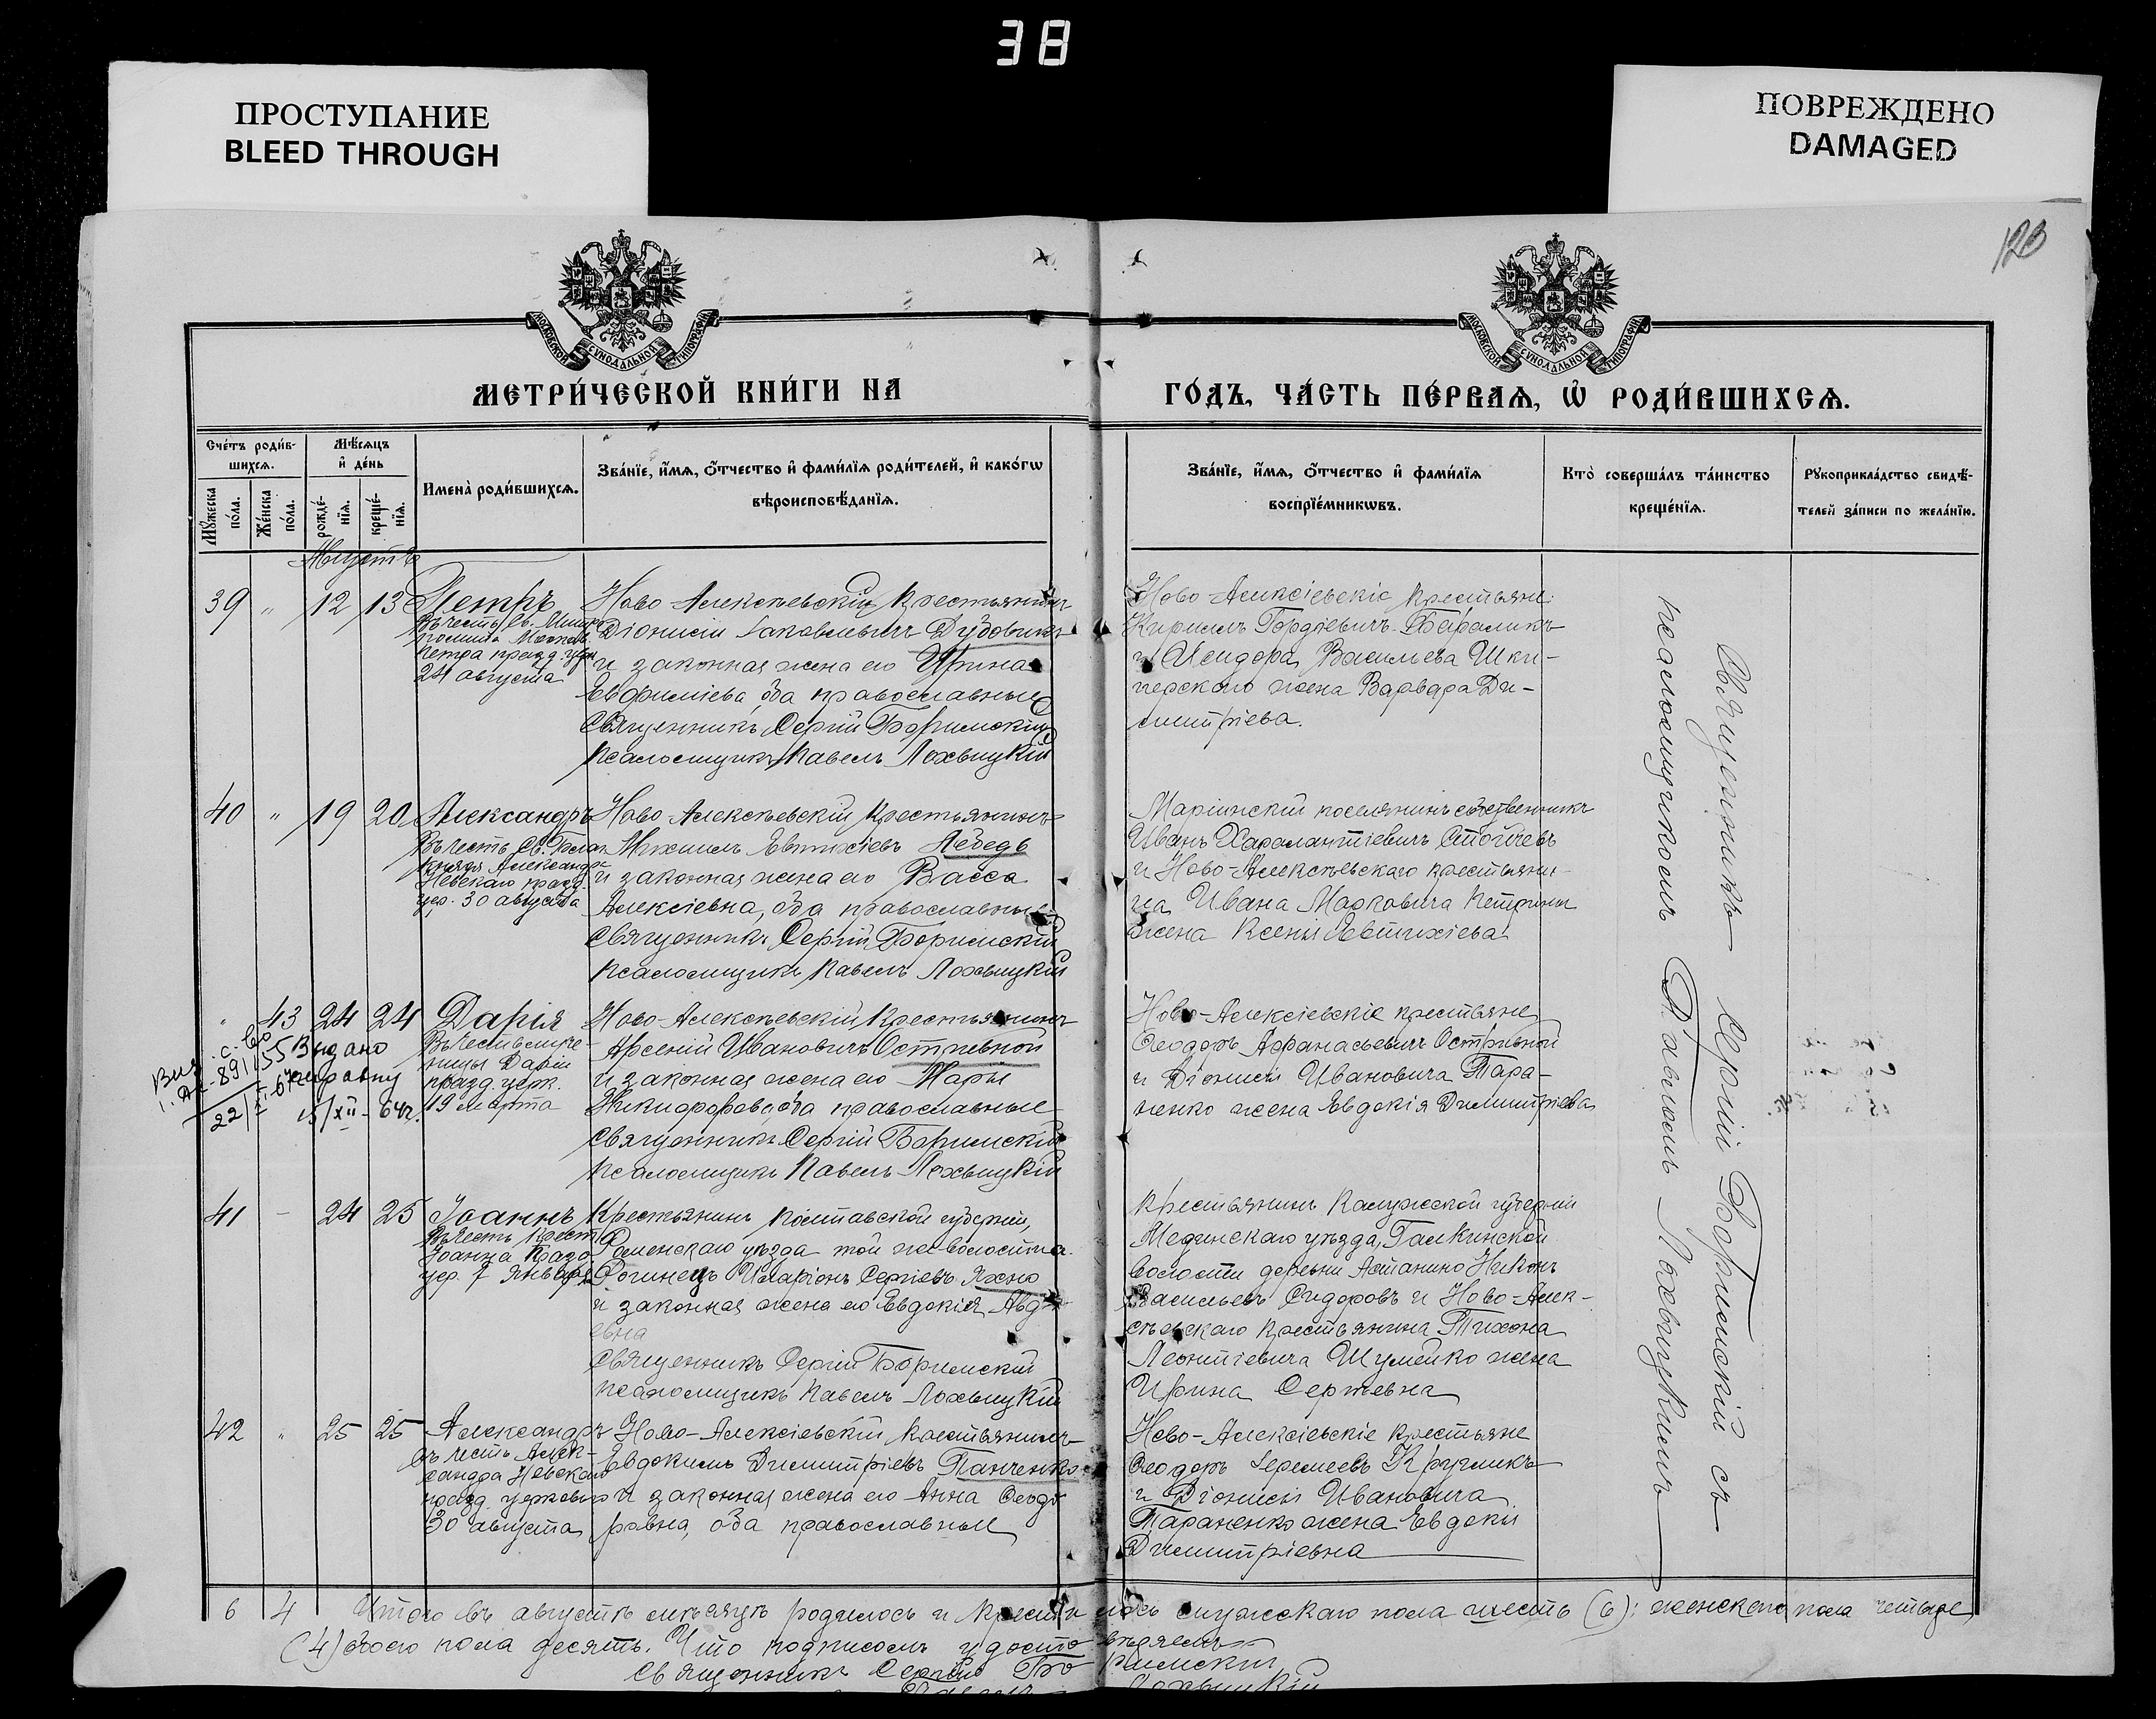 38
ПРОСТУПАНИЕ
BLEED THROUGH
ПОВРЕЖДЕНО
DAMAGED
МОСКОВСКОЙ СУНОДАЛЬНОЙ ТИПОГРАФІИ
МОСКОВСКОЙ СУНОДАЛЬНОЙ ТИПОГРАФІИ
МЕТРИ́ЧЕСКОЙ КНИ́ГИ НА
ГО́ДЪ, ЧА́СТЬ ПЕ́РВАѦ, Ѡ҆ РОДИ́ВШИХСѦ.
Сче́тъ роди́в-
шихсѧ.
Мꙋ́жеска по́ла.
Же́нска по́ла.
Мѣ́сѧцъ
и҆ де́нь
рожде́-
нїѧ.
креще́-
нїѧ.
Имена̀ роди́вшихсѧ.
Зва́нїе, и҆́мѧ, ѻ҆́тчество и҆ фами́лїѧ роди́телей, и҆ како́гѡ
вѣроисповѣ́данїѧ.
Зва́нїе, и҆́мѧ, ѻ҆́тчество и҆ фами́лїѧ
воспрїе́мникѡвъ.
Кто̀ соверша́лъ та́инство
креще́нїѧ.
Рꙋкоприкла́дство свидѣ́-
телей за́писи по жела́нїю.
Августъ
39 " 12 13 Петръ
24 августа
Ново-Алексѣевскій крестьянинъ
Діонисій Іаковлевичъ Дудовикъ
и законная жена его Ирина
Евфиміева оба православные
Священникъ Сергій Боримскій
Псаломщикъ Павелъ Лохвицкій
Ново-Алексіевскіе крестьяне
Кириллъ Гордіевичъ
и Исидора Васильева Шки-
перскаго жена Варвара Ди-
митріева.
40 " 19 20 Александръ
Въ честь Св. Благ.
князя Александра
Невскаго празд.
цер. 30 августа
Ново-Алексѣевскій крестьянинъ
Михаилъ Евтихіевъ Лебедь
и законная жена его Васса
Алексіевна, оба православные
Священникъ Сергій Боримскій
Псаломщикъ Павелъ Лохвицкій
Маріинскій поселянинъ собственникъ
Иванъ Харалантіевичъ Стойчевъ
и Ново-Алексѣевскаго крестьяни-
на Ивана Марковича
жена Ксенія Евтихіева
" 43 24 24 Дарія
Въ честь муче-
ницы Даріи
празд. церк.
19 марта
Выдано
справку
15/XII-64г.
22/I-67
Ново-Алексѣевскій крестьянинъ
Арсеній Ивановичъ Остревной
и законная жена его Марія
Никифорова оба православные
Священникъ Сергій Боримскій
Псаломщикъ Павелъ Лохвицкій
Ново-Алексіевскіе крестьяне
Ѳеодоръ Афанасьевичъ Остривной
и Діонисія Ивановича Тара-
ненко жена Евдокія Димитріева
41 - 24 25 Іоаннъ
Въ честь Крест.
Іоанна празд.
цер. 7 января
Крестьянинъ Полтавской губерніи,
Роменскаго уѣзда той же волости
Иларіонъ Сергіевъ Яхно
и законная жена его Евдокія Авд-
евна
Священникъ Сергій Боримскій
Псаломщикъ Павелъ Лохвицкій
Крестьянинъ Калужской губерніи
Медынскаго уѣзда, Галкинской
волости деревни Астанино Никонъ
Васильевъ Сидоровъ и Ново-Алек-
сѣевскаго крестьянина Тихона
Леонтіевича Шумейко жена
Ирина Сергіевна
42 " 25 25 Александръ
въ честь Алек-
сандра Невскаго
празд. церковью
30 августа
Ново-Алексіевскій крестьянинъ
Евдокимъ Димитріевъ Панченко
и законная жена его Анна Ѳеодо-
ровна, оба православные
Ново-Алексіевскіе крестьяне
Ѳеодоръ Іеремеевъ Кругликъ
и Діонисія Ивановича
Тараненко жена Евдокія
Димитріевна
Священникъ Сергій Боримскій съ
псаломщикомъ Павломъ Лохвицкимъ
6 4 Итого въ августѣ мѣсяцѣ родилось и крестилось мужскаго пола шесть (6); женскаго пола четыре
(4) обоего пола десять. Что подписомъ удостовѣряемъ
Священникъ Сергій Боримскій
Лохвицкій